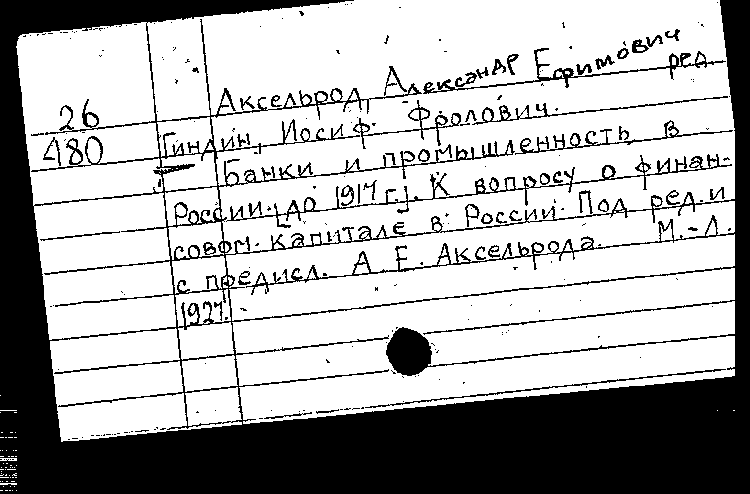 Аксельрод, Александр Ефимович
ред.
26
480
Гиндин, Иосиф Фролович.
Банки и промышленность в
России. [до 1917 г.]. К вопросу о финан-
совом. капитале в России. Под ред. и
с предисл. А. Е. Аксельрода. М.-Л.
1927.